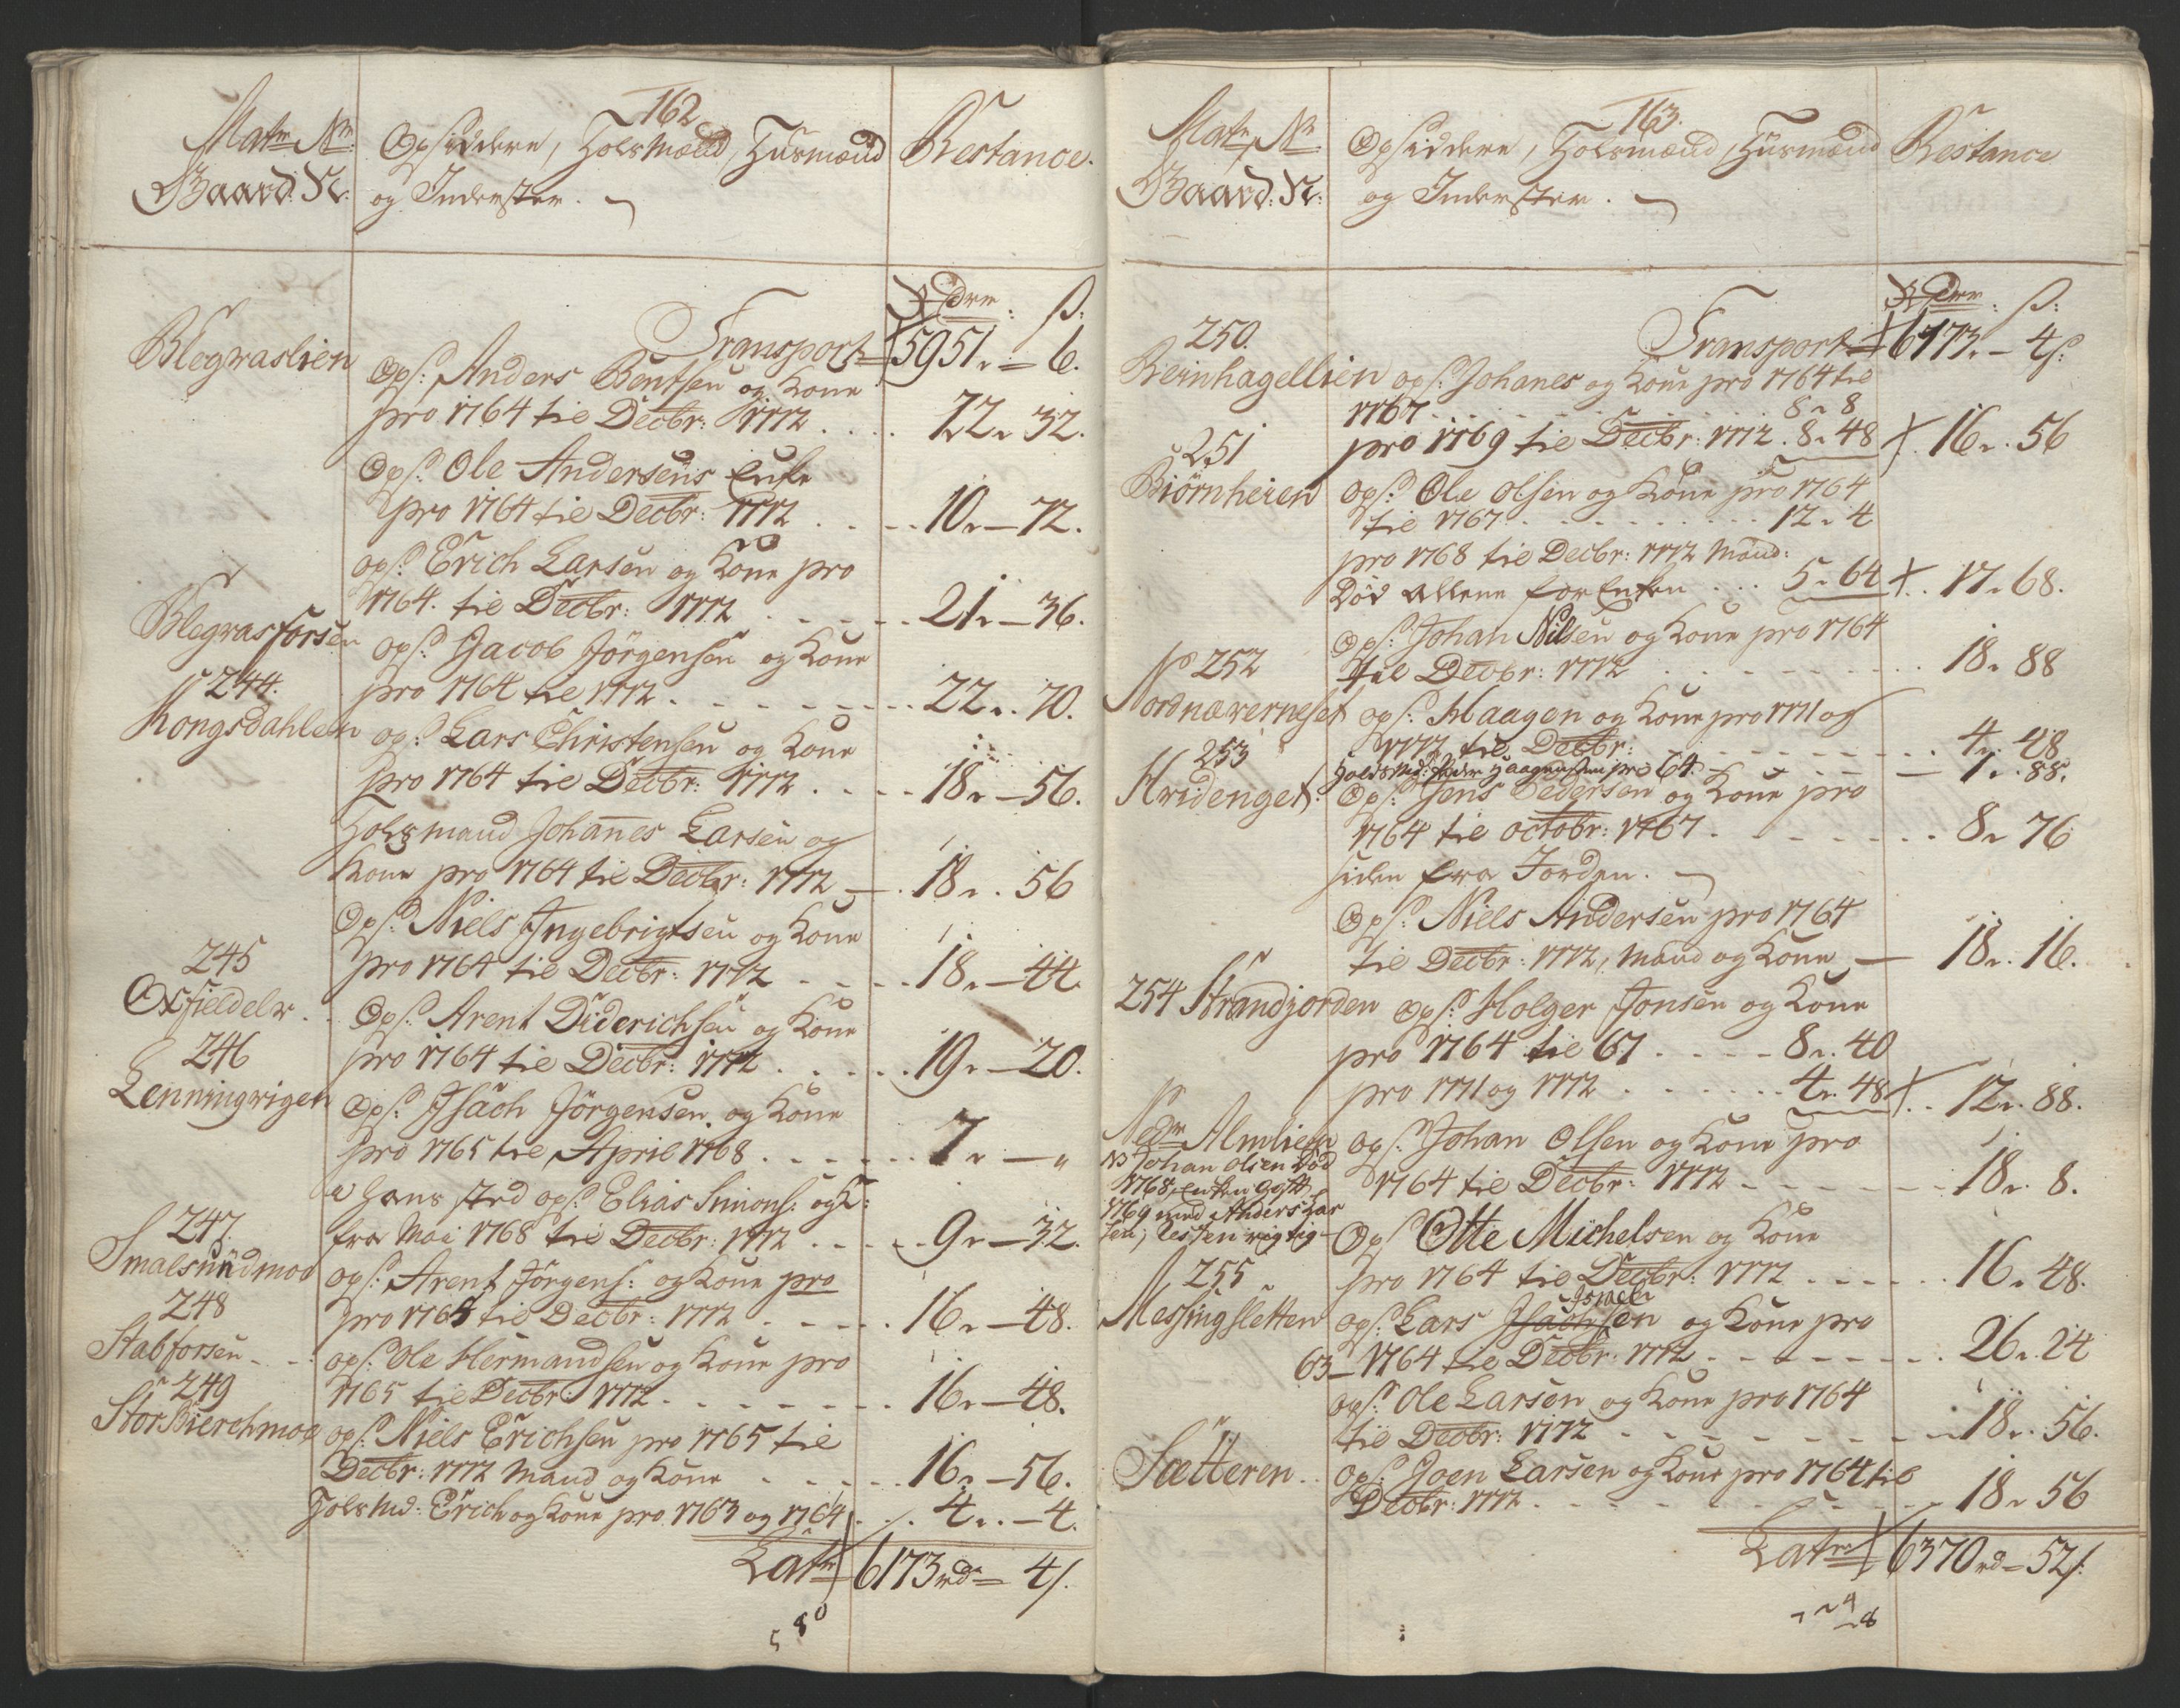 162
Matr Nr: Opsiddere, Holsmænd, Husmænd Restance.
Gaard: N: og Inderster.
Rdr: ß:
Transport 5951 - 6.
Blegraslien Ops: Anders Bentsen og Kone
pro 1764 til Decbr: 1772 . . . . 22 - 32.
Ops: Ole Andersens Enke
pro 1764 til Decbr: 1772 . . . . 10 - 72.
ops: Erich Larsen og Kone pro
1764. til Decbr: 1772 . . . . . 21 - 36.
Blegrasforsen ops: Jacob Jörgensen og Kone
pro 1764 til 1772 . . . . . . . 22 . 70.
244.
Kongsdahlen op: Lars Christensen og Kone
pro 1764 til Decbr: 1772 . . . . 18 - 56.
Holsmand Johannes Larsen og
Kone pro 1764 til Decbr: 1772 - . 18 . 56
Ops: Niels Ingebrigtsen og Kone
245 pro 1764 til Decbr: 1772 . . . . 18 - 44.
Oxfieldelv . . Ops: Arent Diderichsen og Kone
246 pro 1764 til Decbr: 1772 . . . . . 19 - 20.
Lenningvigen Ops: Isach Jörgensen og Kone
pro 1765 til April 1768 . . . . . . 7 - "
i hans sted ops: Elias Simons: og K:
247. fra Mai 1768 til Decbr: 1772 . . . . 9 - 32.
Smalsundmoe ops: Arent Jörgens: og Kone pro
248 pro 1765 til Decbr: 1772 . . . . . 16 - 48.
Stabforsen - - ops: Ole Hermandsen og Kone pro
249 1765 til Decbr: 1772 . . . . . . . 16 - 48.
StorBierchmoe ops: Niels Erichsen pro 1765 til
Decbr: 1772 Mand og Kone . . . . . 16 - 56.
Holsmd: Erich og Kone pro 1763 og 1764 . . . 4 . . - 4.
Latr 6173 rd - 4 ß.
163.
Matr Nr Opsiddere, Holsmænd, Husmænd Restance
Gaard: N: og Inderster.
Rdr: ß:
250. Transport 6173 - 4 ß:
Reinhagellien ops: Johanes og Kone pro 1764 til
1767 . . . . . . . . . . 8 - 8
251 pro 1769 til Decbr: 1772 . 8 - 48 . 16 . 56
Biörnheien ops: Ole Olsen og Kone pro 1764
til 1767 . . . . . . . . . . 12 . 4
pro 1768 til Decbr: 1772 Mand:
Död allene for Enken . . . 5 - 64 . . 17 . 68.
Ops: Johan Nilsen og Kone pro 1764
No 252 til Decbr: 1772 . . . . . . . . 18 . 88
Nordnæverneset ops: Haagen og Kone pro 1771 og
253 1772 til Decbr: . . . . . . . . 4 . 48
Holdsmd: Peder Haagensen pro 64 . - - - - 1 . . 88.
Hvidenget. Ops: Jens Pedersen og Kone pro
1764 til octobr: 1767 . . . . . . . 8 . 76
siden fra Jorden.
Ops: Niels Andersen pro 1764
til Decbr: 1772, Mand og Kone - 18 . 16.
254 Strandjorden Ops: Holger Jonsen og Kone
pro 1764 til 67 . . . . . 8 . 40
pro 1771 og 1772 . . . . . . . 4 . 48 . . 12 . 88.
Nedre Almlien ops: Johan Olsen og Kone pro
NB Johan Olsen Död
1768, Enken gift 1764 til Decbr: 1772 . . . . . . . 18 . 8.
1769 med Anders Lar
sen; Listen rigtig - Ops: Otte Michelsen og Kone
255 pro 1764 til Decbr: 1772 . . . . . . 16 . 48.
Israel
Messingsletten ops: Lars Isachsen og Kone pro
63 - 1764 til Decbr: 1772 . . . . . . . . 26 . 24
ops: Ole Larsen og Kone pro 1764
til Decbr: 1772 - - - - - - - - 18 . 56.
Sætteren . . Ops: Joen Larsen og Kone pro 1764 til
Decbr: 1772 . . . . . . . . . . 18 . 56
Latr 6370 rd - 52 ß: